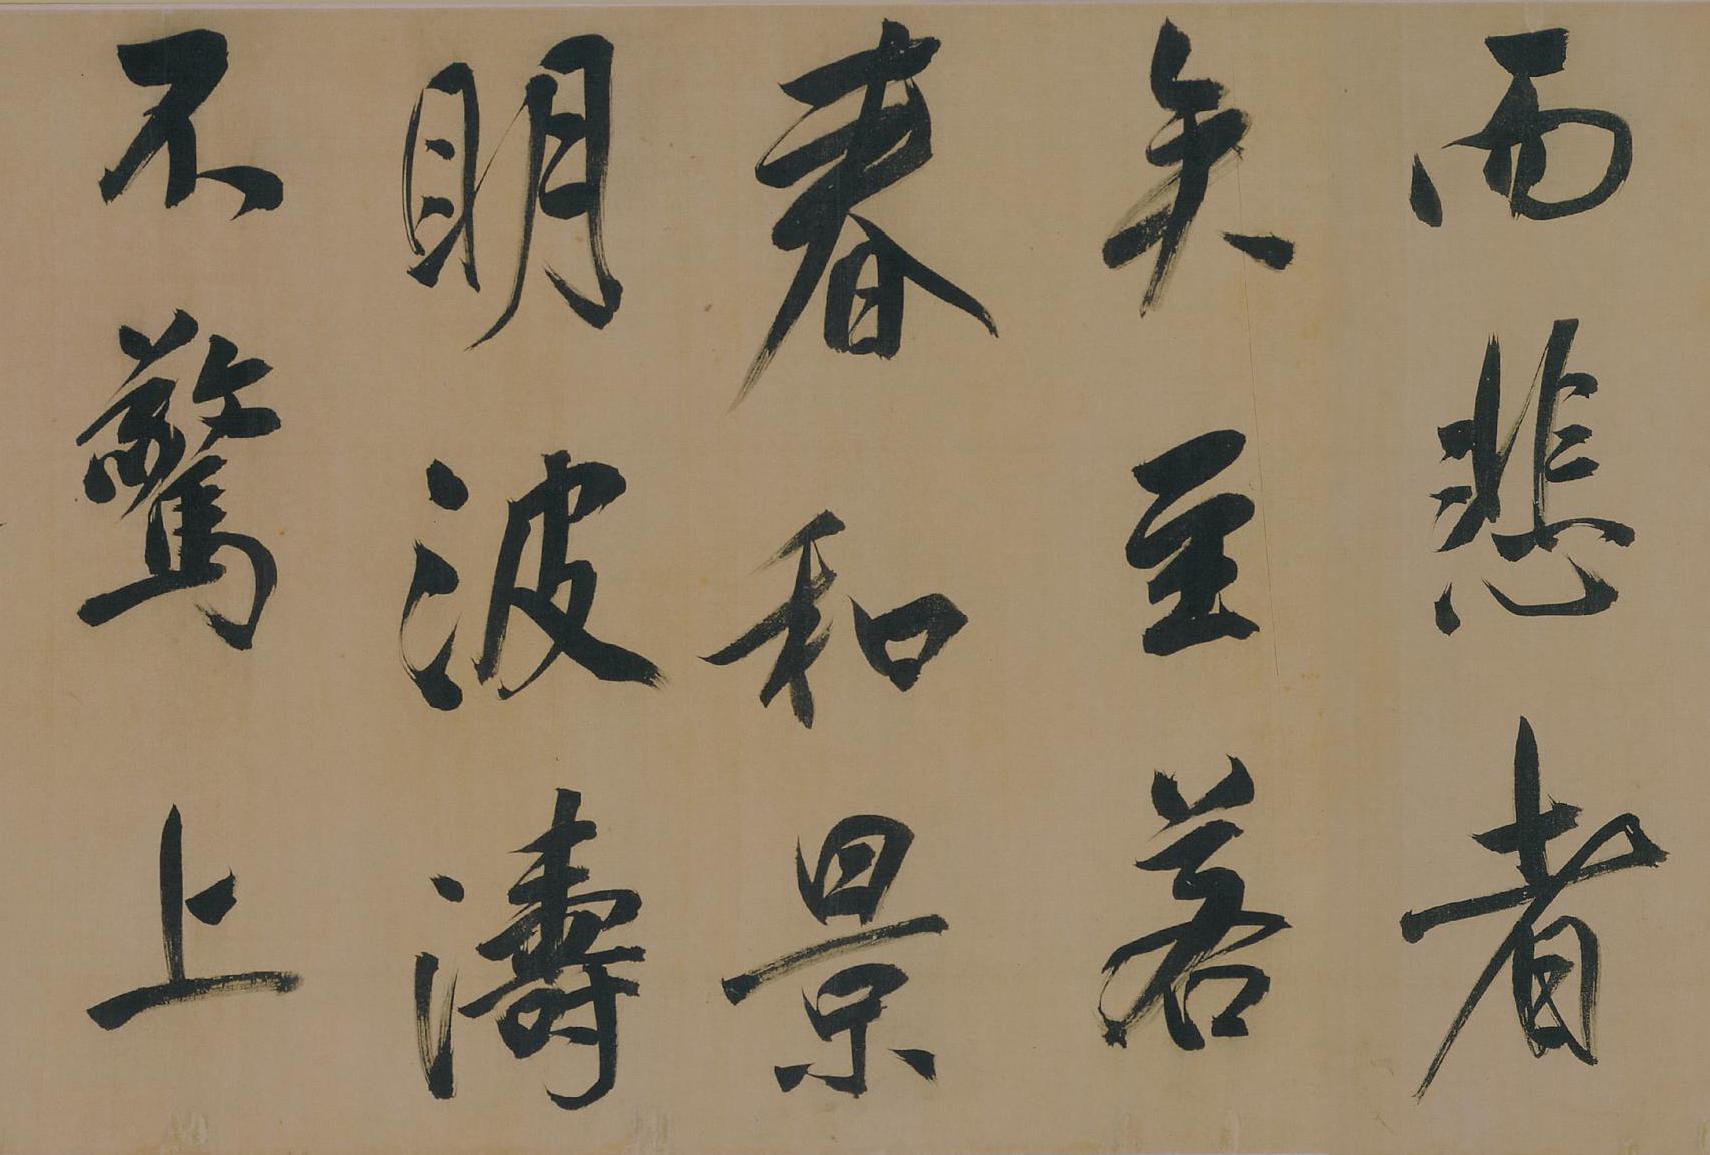 而悲者
矣至若
春和景
明波濤
不驚上